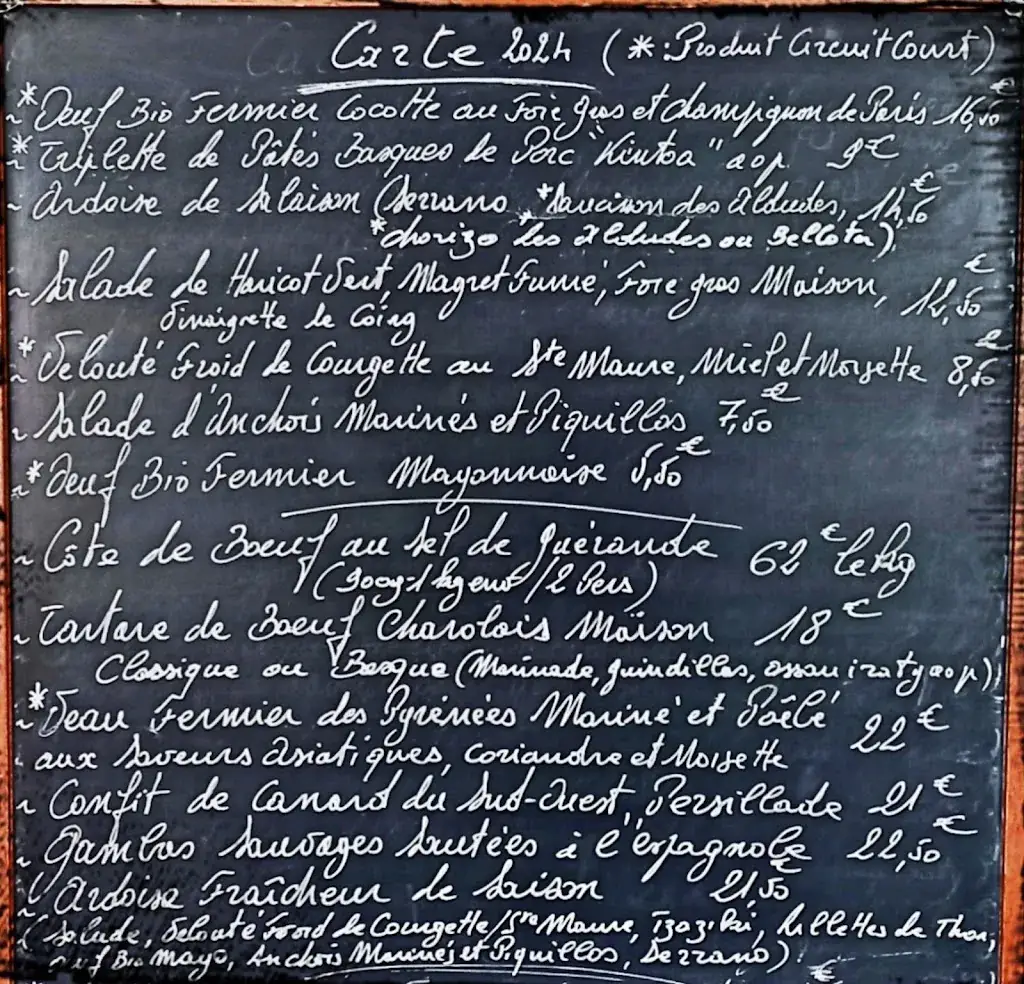 Carte 2024 (* : Produit Circuit Court)
~ * Oeuf Bio Fermier Cocotte au Foie gras et champignon de Paris 16,50 €
~ * Triplette de Pâtés Basques de Porc "Kintoa" aop 9 €
~ Ardoise de Salaison (Serrano, * Saucisson des Aldudes, 14,50 €
* chorizo des Aldudes ou Bellota)
~ Salade de Haricot Vert, Magret Fumé, Foie gras Maison, 12,50 €
Vinaigrette de Coing
~ * Velouté Froid de Courgette au Ste Maure, Miel et Noisette 8,50 €
~ Salade d'Anchois Marinés et Piquillos 7,50 €
~ * Oeuf Bio Fermier Mayonnaise 5,50 €
~ Côte de Boeuf au Sel de Guérande 62 € le kg
(900g-1kg env / 2 Pers)
~ Tartare de Boeuf Charolais Maison 18 €
Classique ou Basque (Marinade, guindillas, ossau iraty aop)
~ * Veau Fermier des Pyrénées Mariné et Poêlé 22 €
aux saveurs asiatiques, coriandre et Noisette
~ Confit de Canard du Sud-Ouest, Persillade 21 €
~ Gambas Sauvages Sautées à l'espagnole 22,50 €
~ Ardoise Fraîcheur de Saison 21,50 €
(Salade, Velouté Froid de Courgette/Ste Maure, Tzaziki, Rillettes de Thon,
Oeuf Bio Mayo, Anchois Marinés et Piquillos, Serrano)
€